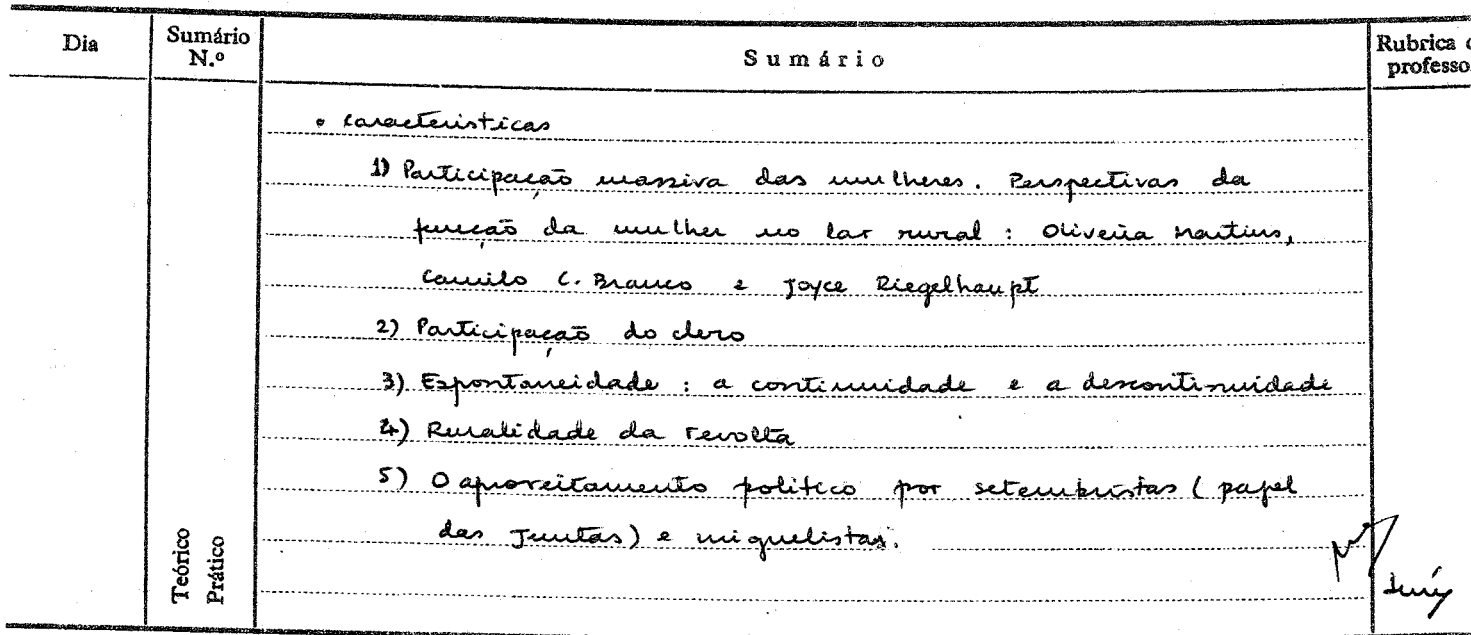 Dia
Sumário N.º
Sumário
Rubrica
professo
• características
1) Participação massiva das mulheres. Perspectivas da
função da mulher no lar rural : Oliveira Martins,
Camilo C. Branco e Joyce Riegelhaupt
2) Participação do clero
3) Espontaneidade : a continuidade e a descontinuidade
4) Ruralidade da revolta
5) O aproveitamento político por setembristas ( papel
das Juntas) e miguelistas.
Teórico
Prático